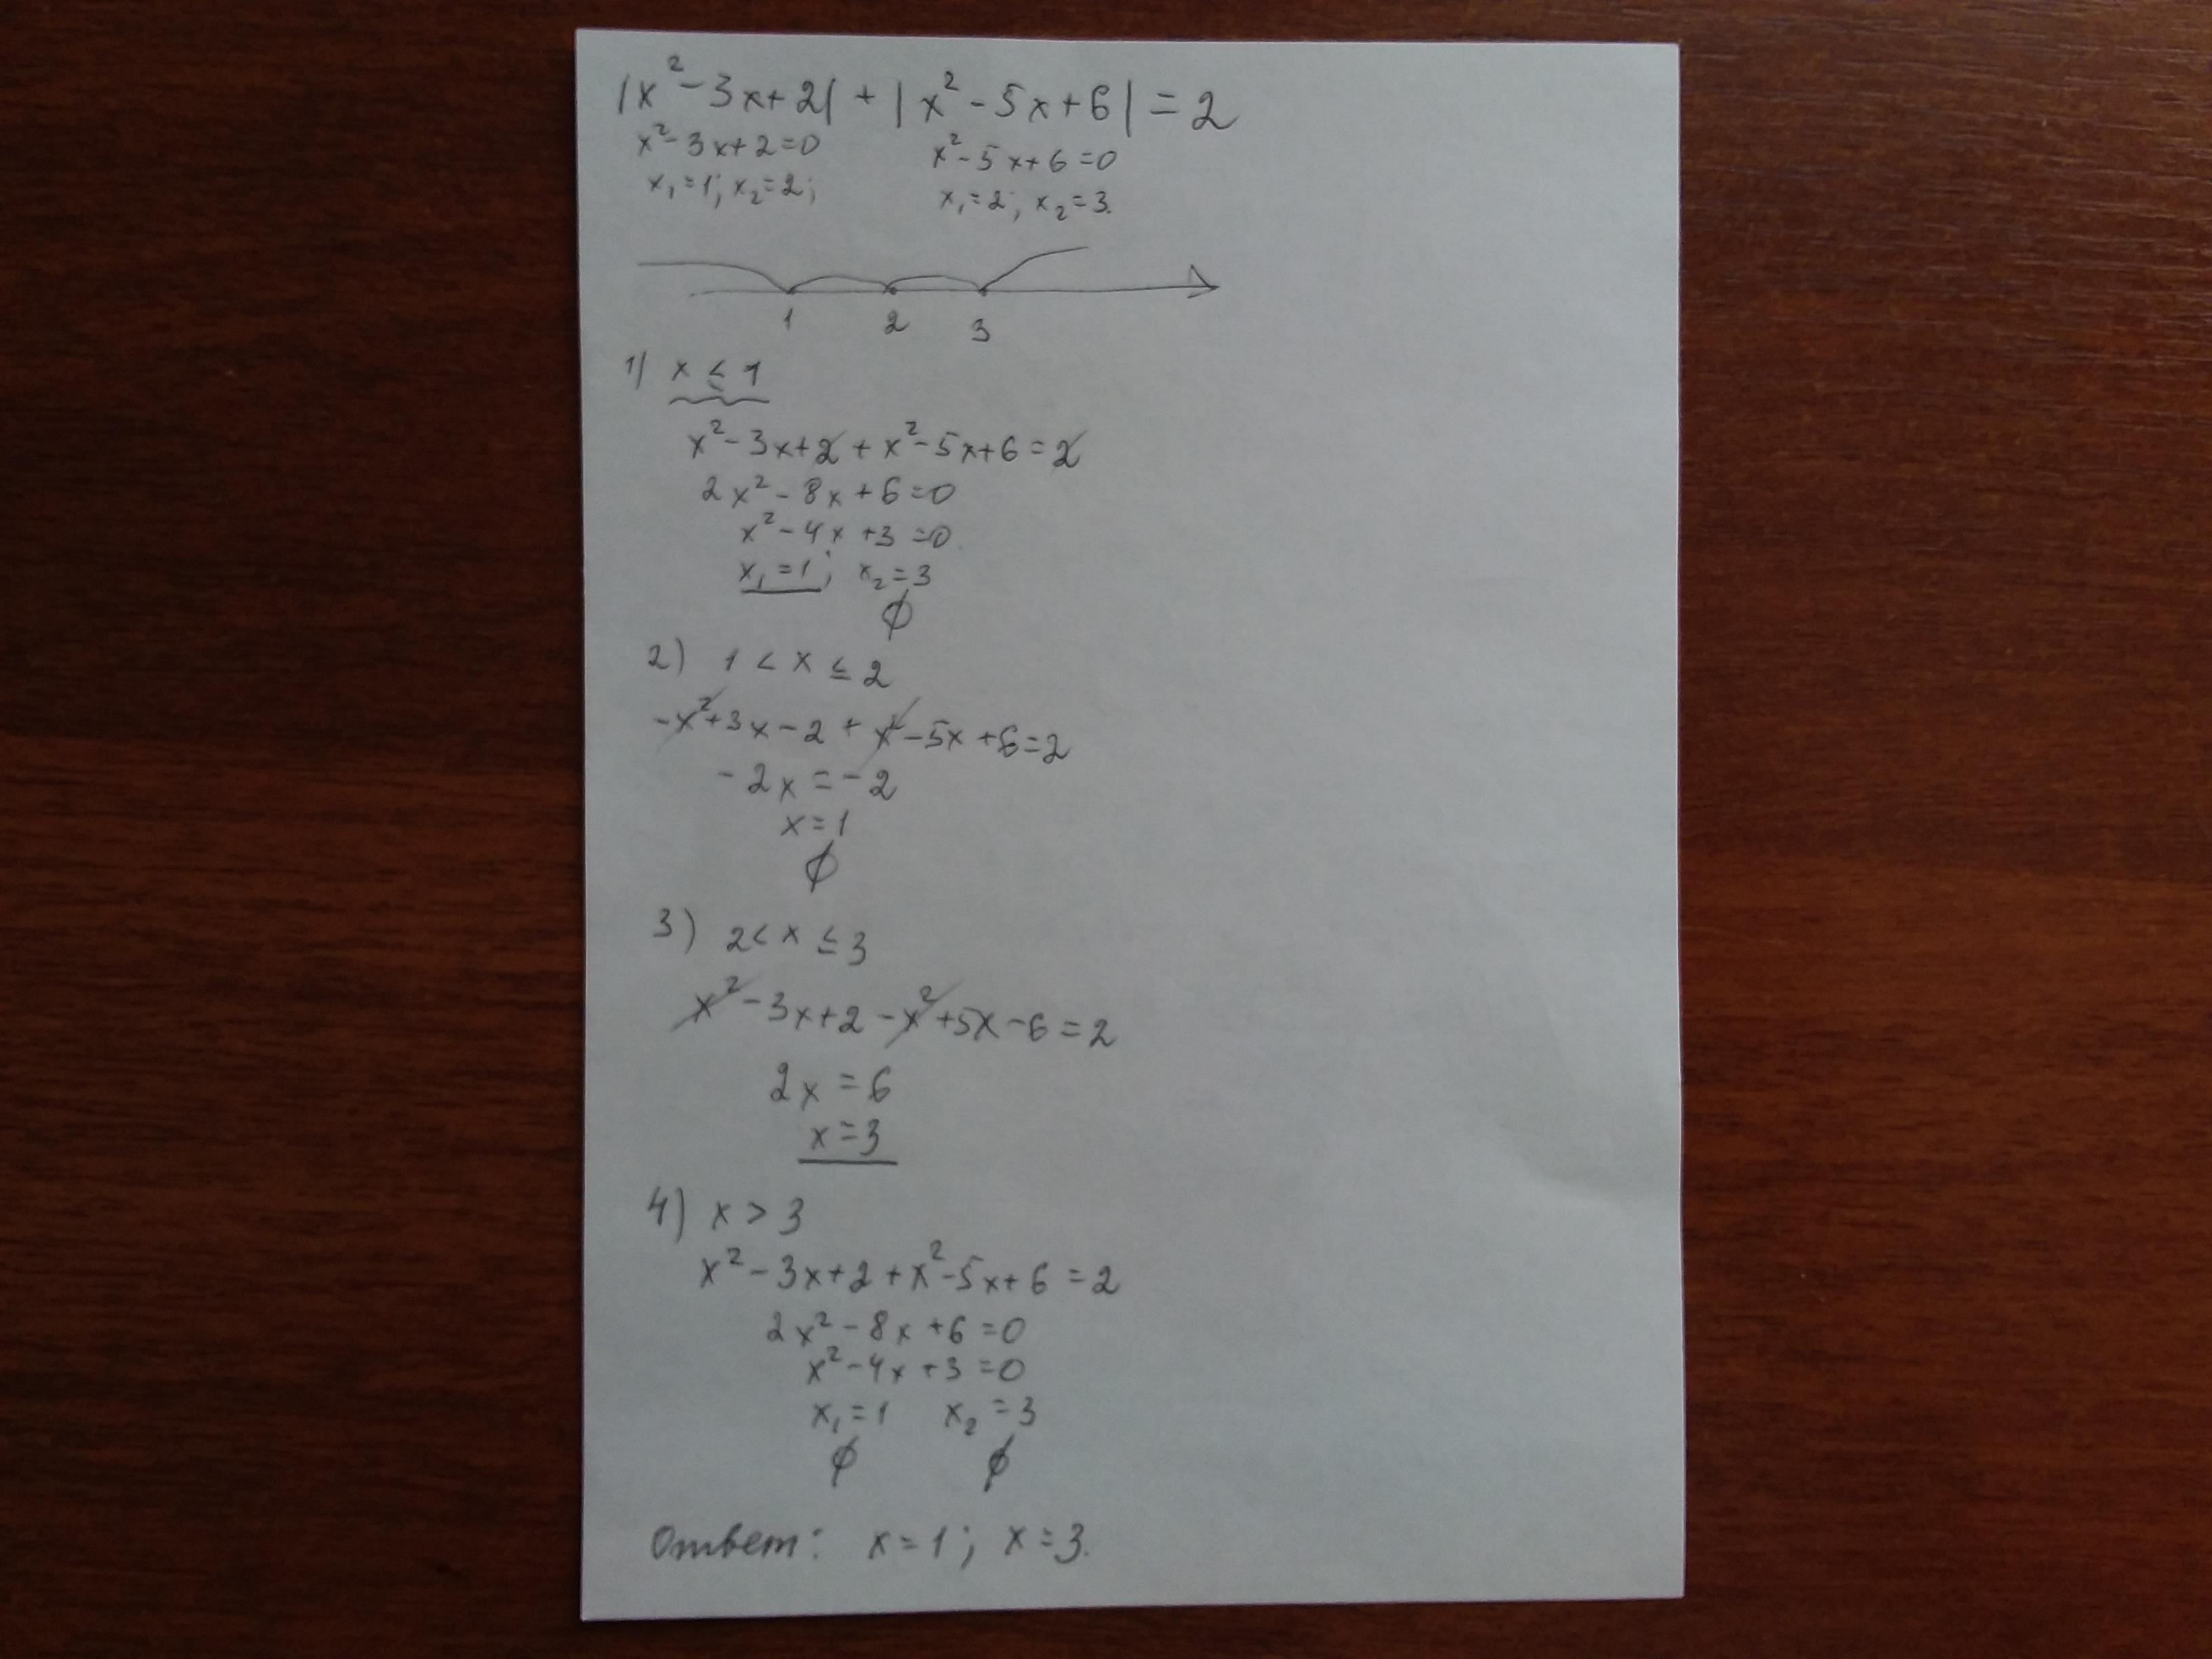 |x² - 3x + 2| + |x² - 5x + 6| = 2
x² - 3x + 2 = 0 x² - 5x + 6 = 0
x₁ = 1; x₂ = 2; x₁ = 2; x₂ = 3.
1 2 3
1) x ≤ 1
x² - 3x + 2 + x² - 5x + 6 = 2
2x² - 8x + 6 = 0
x² - 4x + 3 = 0
x₁ = 1; x₂ = 3
∅
2) 1 < x ≤ 2
-x² + 3x - 2 + x² - 5x + 6 = 2
-2x = -2
x = 1
∅
3) 2 < x ≤ 3
x² - 3x + 2 - x² + 5x - 6 = 2
2x = 6
x = 3
4) x > 3
x² - 3x + 2 + x² - 5x + 6 = 2
2x² - 8x + 6 = 0
x² - 4x + 3 = 0
x₁ = 1 x₂ = 3
∅ ∅
Ответ: x = 1; x = 3.